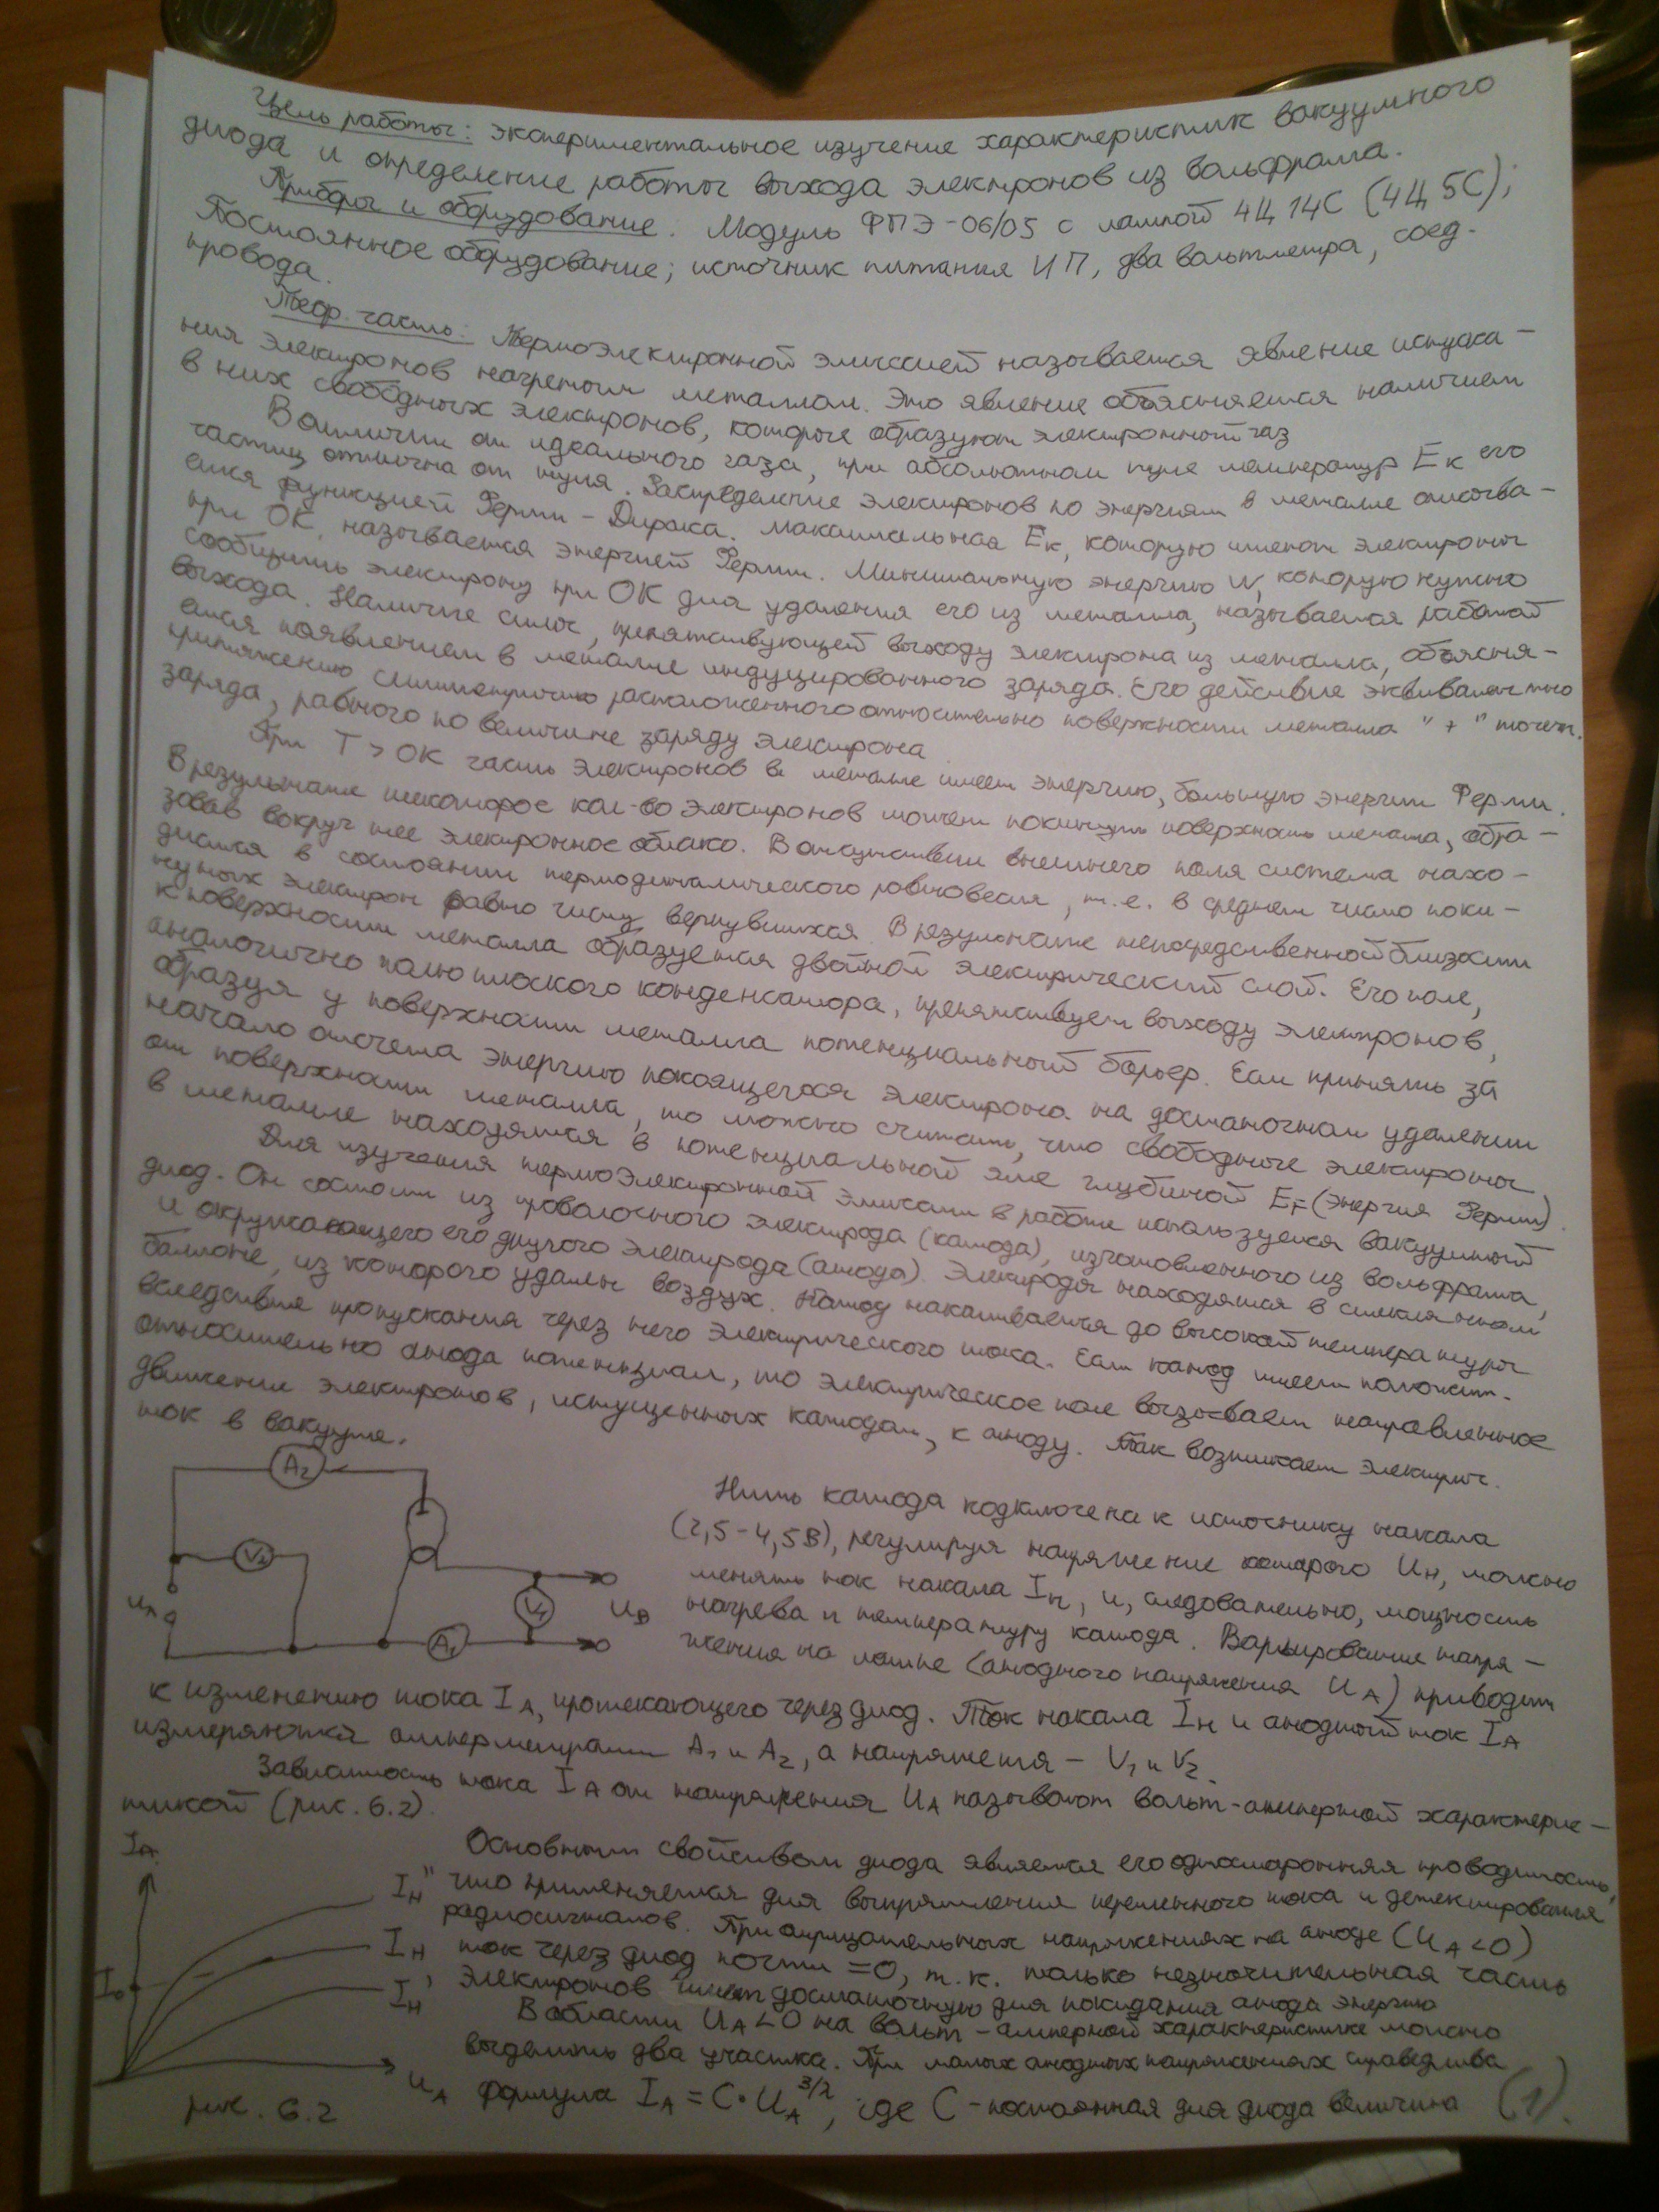 Цель работы: экспериментальное изучение характеристик вакуумного
диода и определение работы выхода электронов из вольфрама.
Приборы и оборудование. Модуль ФПЭ-06/05 с лампой 4Ц14С (4Ц5С);
Постоянное оборудование; источник питания ИП, два вольтметра, соед.
провода.
Теор. часть: Термоэлектронной эмиссией называется явление испуска-
ния электронов нагретым металлом. Это явление объясняется наличием
в них свободных электронов, которые образуют электронный газ
В отличии от идеального газа, при абсолютном нуле температур Eк его
частиц отлична от нуля. Распределение электронов по энергиям в металле описыва-
ется функцией Ферми-Дирака. Максимальная Eк, которую имеют электроны
при 0К, называется энергией Ферми. Минимальную энергию W, которую нужно
сообщить электрону при 0К для удаления его из металла, называется работой
выхода. Наличие силы, препятствующей выходу электрона из металла, объясня-
ется появлением в металле индуцированного заряда. Его действие эквивалентно
притяжению симметрично расположенного относительно поверхности металла "+" точечн.
заряда, равного по величине заряду электрона
При T > 0К часть электронов в металле имеет энергию, большую энергии Ферми.
В результате некоторое кол-во электронов может покинуть поверхность металла, обра-
зовав вокруг нее электронное облако. В отсутствии внешнего поля система нахо-
дится в состоянии термодинамического равновесия, т.е. в среднем число поки-
нутых электрон равно числу вернувшихся. В результате непосредственной близости
к поверхности металла образуется двойной электрический слой. Его поле,
аналогично полю плоского конденсатора, препятствует выходу электронов,
образуя у поверхности металла потенциальный барьер. Если принять за
начало отсчета энергию покоящегося электрона на достаточном удалении
от поверхности металла, то можно считать, что свободные электроны
в металле находятся в потенциальной яме глубиной EF (энергия Ферми).
Для изучения термоэлектронной эмиссии в работе используется вакуумный
диод. Он состоит из проволочного электрода (катода), изготовленного из вольфрама,
и окружающего его другого электрода (анода). Электроды находятся в стеклянном
баллоне, из которого удален воздух. Катод накаливается до высокой температуры
вследствие пропускания через него электрического тока. Если катод имеет положит.
относительно анода потенциал, то электрическое поле вызывает направленное
движение электронов, испущенных катодом, к аноду. Так возникает электрич.
ток в вакууме.
A2
V2
UA
V1
UB
A1
Нить катода подключена к источнику накала
(2,5-4,5В), регулируя напряжение которого Uн, можно
менять ток накала Iн, и, следовательно, мощность
нагрева и температуру катода. Варьирование напря-
жения на лампе (анодного напряжения UA) приводит
к изменению тока IA, протекающего через диод. Ток накала Iн и анодный ток IA
измеряются амперметрами A1 и A2, а напряжения - V1 и V2.
Зависимость тока IA от напряжения UA называют вольт-амперной характерис-
тикой (рис. 6.2).
IA
Iн"
Iн
Iн'
I0
UA
рис. 6.2
Основным свойством диода является его односторонняя проводимость,
что применяется для выпрямления переменного тока и детектирования
радиосигналов. При отрицательных напряжениях на аноде (UA<0)
ток через диод почти =0, т.к. только незначительная часть
электронов имеет достаточную для покидания анода энергию
В области UA<0 на вольт-амперной характеристике можно
выделить два участка. При малых анодных напряжениях справедлива
формула IA = C·UA^3/2, где C - постоянная для диода величина (1).